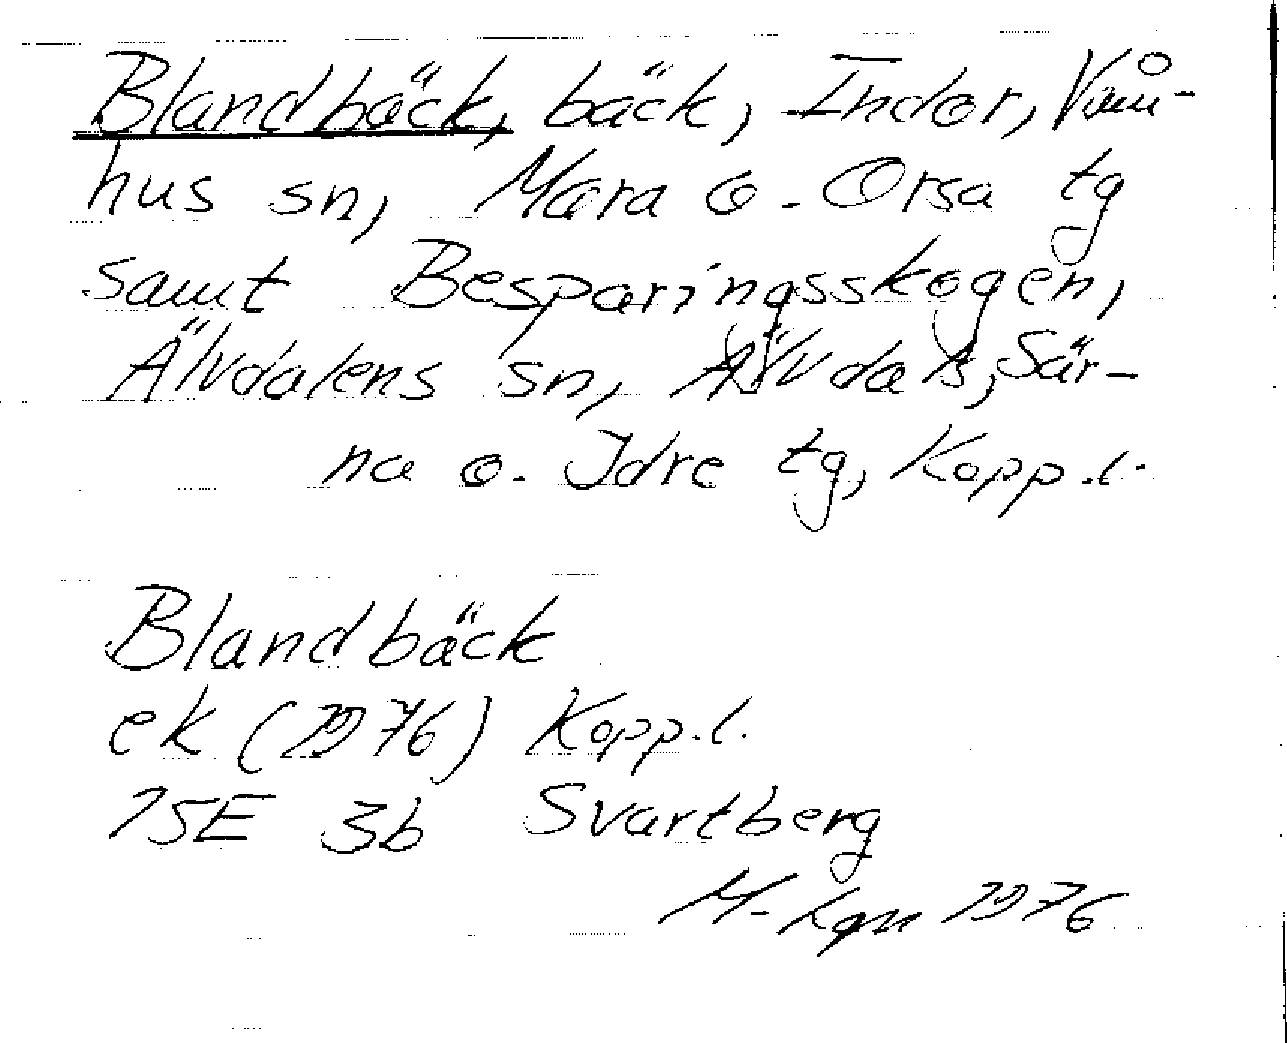 Blandbäck, bäck, Indor, Våm-
hus sn, Mora o. Orsa tg
samt Besparingsskogen,
Älvdalens sn, Älvdals, Sär-
na o. Idre tg, Kopp.l.
Blandbäck
ek (1976) Kopp.l.
15E 3b Svartberg
1976